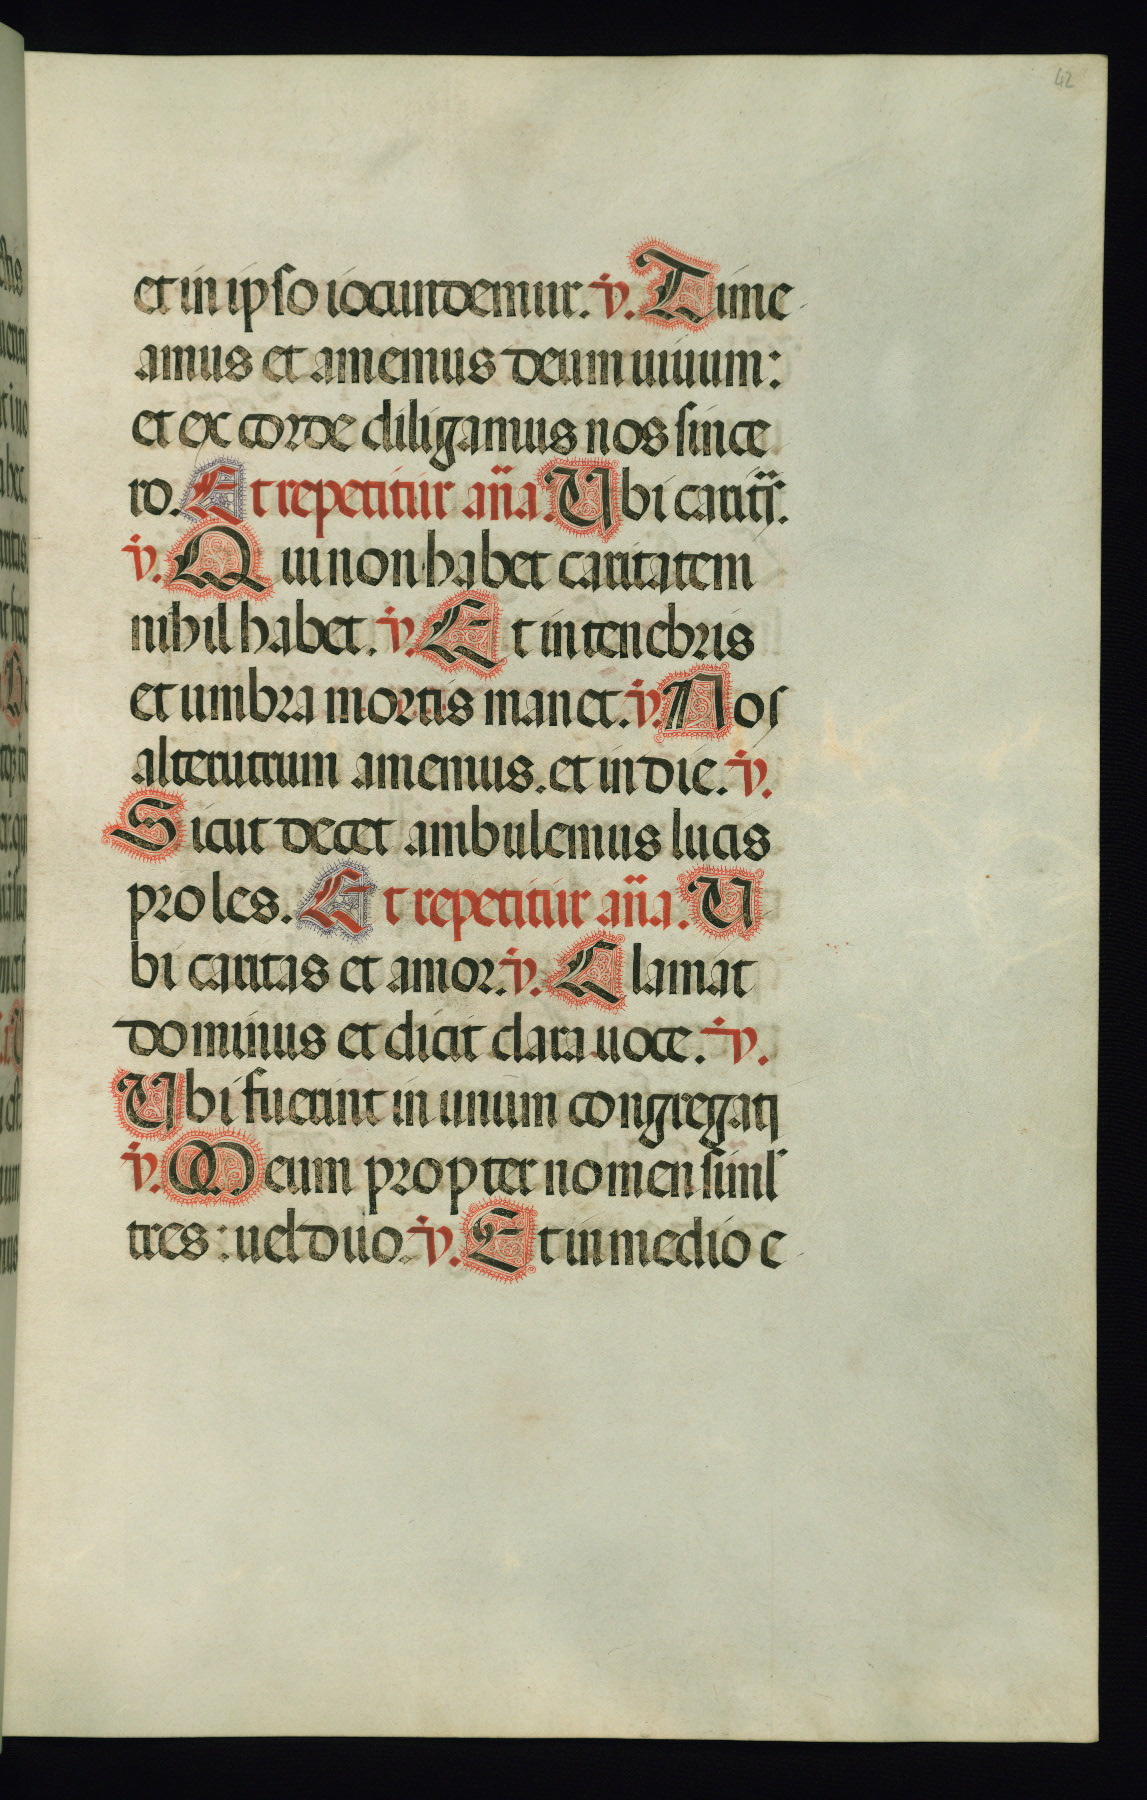 42
et in ipso iocundemur. v. Time
amus et amemus deum uiuum:
et ex corde diligamus nos since
ro. Et repetitur an̄a. Ubi carit̄s.
v. Qui non habet caritatem
nihil habet. v. Et in tenebris
et umbra mortis manet. v. Nos
alterutrum amemus. et in die. v.
Sicut decet ambulemus lucis
proles. Et repetitur an̄a. U
bi caritas et amor. v. Clamat
dominus et dicit clara uoce. v.
Ubi fuerint in unum congregati
v. Meum propter nomen simul
tres: uel duo. v. Et in medio e